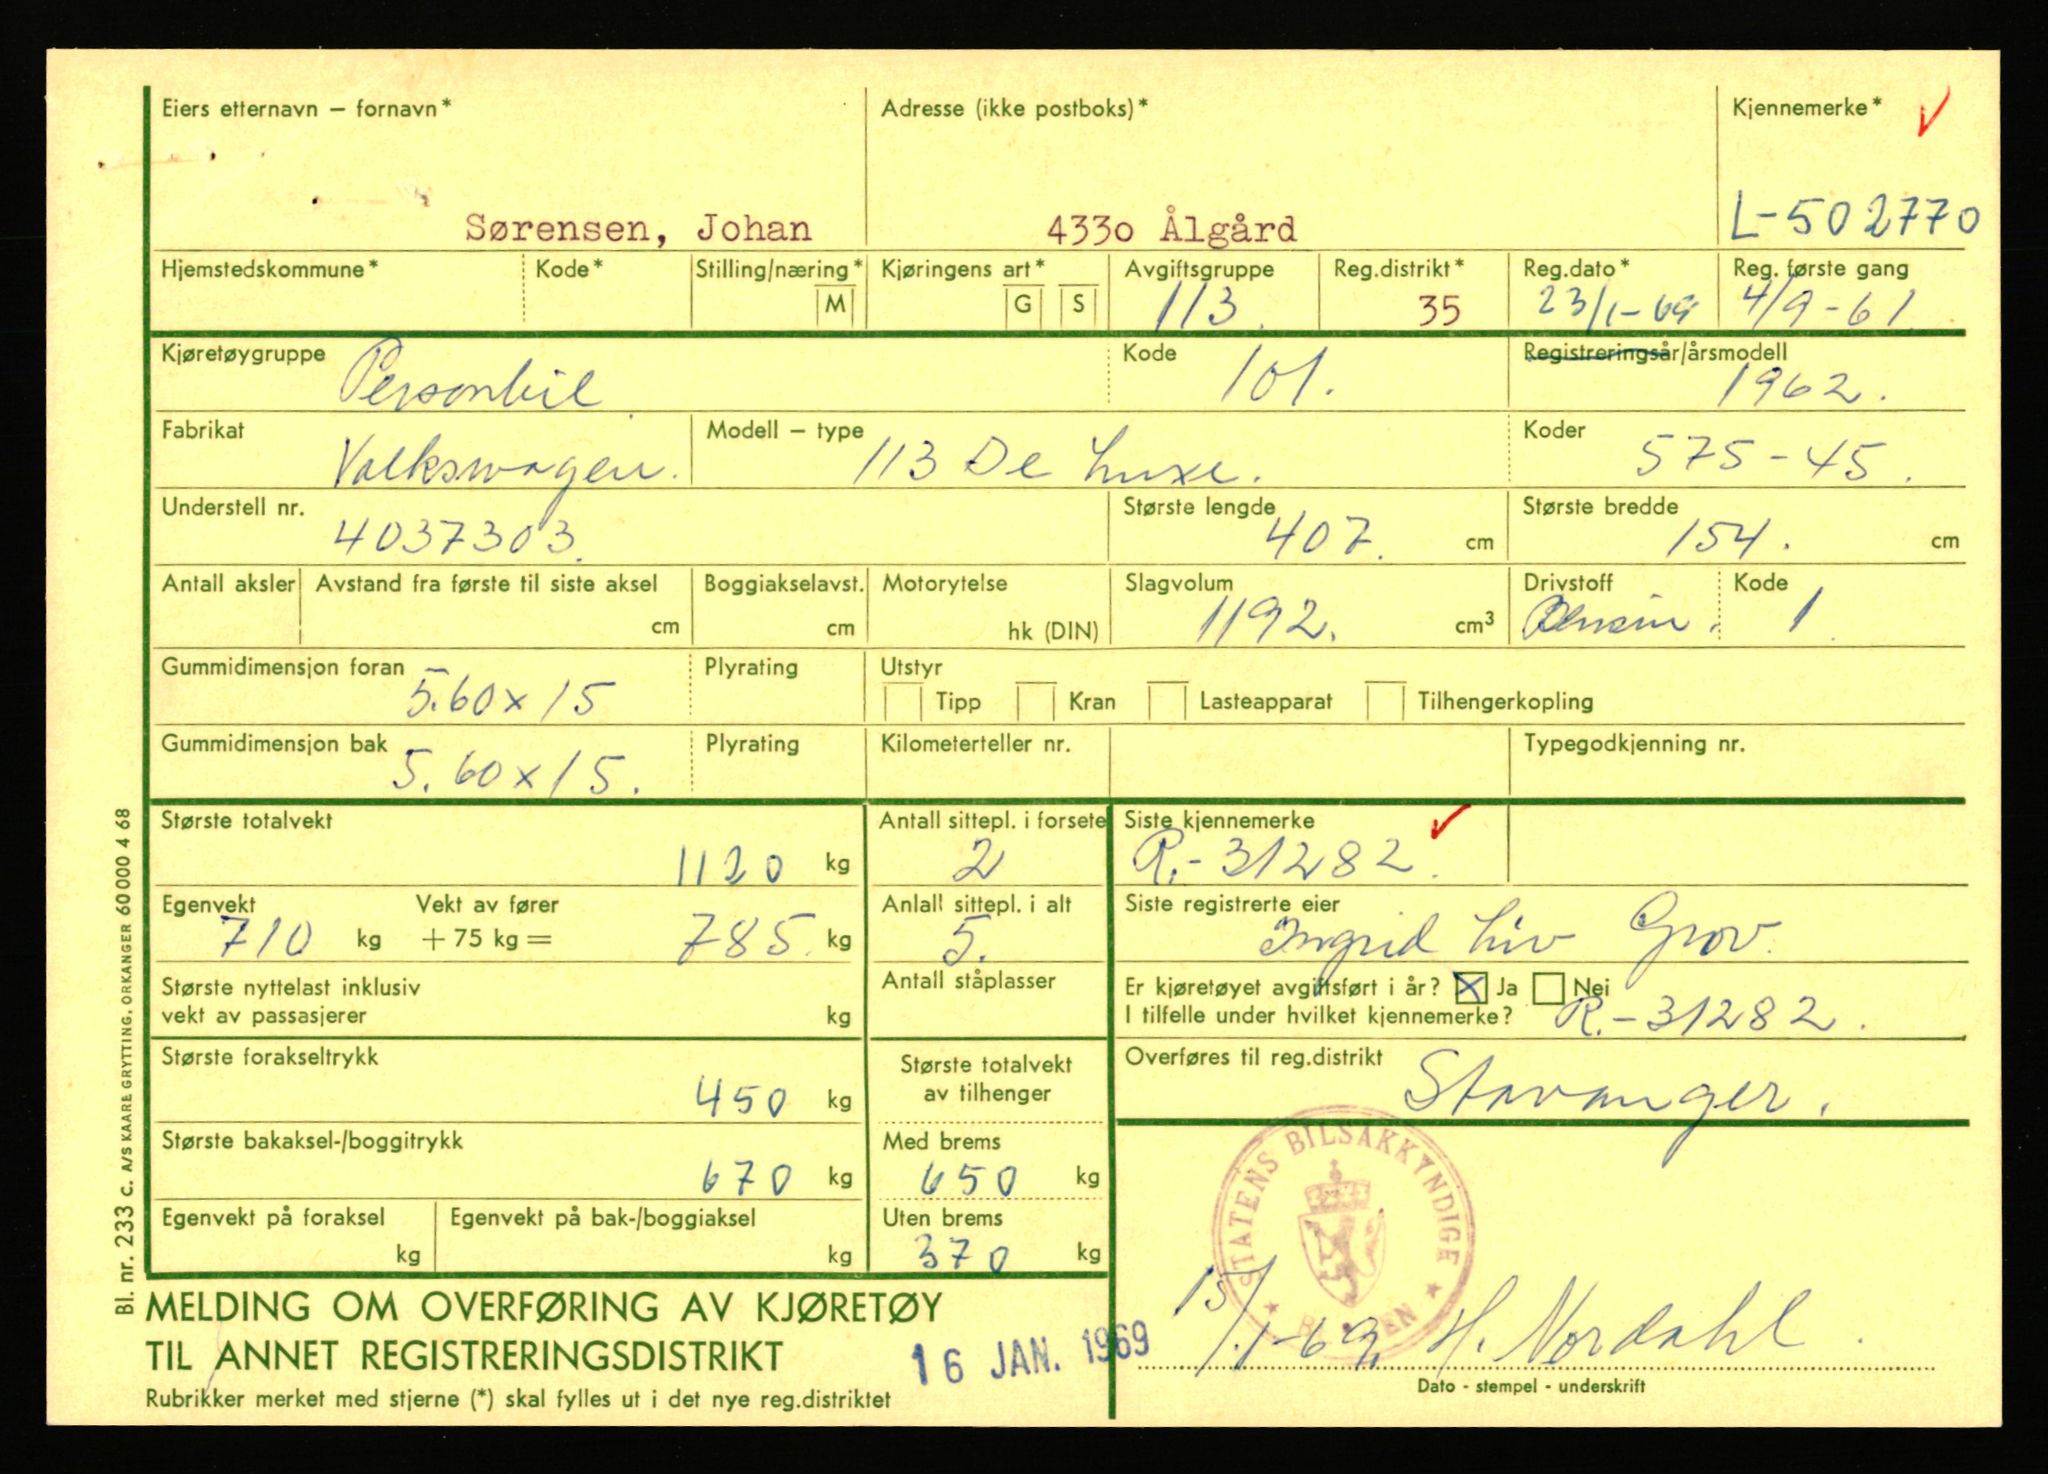 Eiers etternavn – fornavn* Adresse (ikke postboks)* Kjennemerke*
Sørensen, Johan 4330 Ålgård L-502770
Hjemstedskommune* Kode* Stilling/næring* Kjøringens art* Avgiftsgruppe Reg.distrikt* Reg.dato* Reg. første gang
M G S 113. 35 23/1-69 4/9-61
Kjøretøygruppe Kode Registreringsår/årsmodell
Personbil 101. 1962.
Fabrikat Modell – type Koder
Volkswagen. 113 De Luxe. 575-45.
Understell nr. Største lengde Største bredde
4037303. 407. cm 154. cm
Antall aksler Avstand fra første til siste aksel Boggiakselavst. Motorytelse Slagvolum Drivstoff Kode
cm cm hk (DIN) 1192. cm³ Bensin. 1
Gummidimensjon foran Plyrating Utstyr
5.60x15 Tipp Kran Lasteapparat Tilhengerkopling
Gummidimensjon bak Plyrating Kilometerteller nr. Typegodkjenning nr.
5.60x15.
Største totalvekt Antall sittepl. i forsete Siste kjennemerke
1120 kg 2 R.-31282.
Egenvekt Vekt av fører Anlall sittepl. i alt Siste registrerte eier
710 kg + 75 kg = 785. kg 5. Ingrid Liv Grov.
Største nyttelast inklusiv Antall ståplasser Er kjøretøyet avgiftsført i år? Ja Nei
vekt av passasjerer kg I tilfelle under hvilket kjennemerke? R.-31282.
Største forakseltrykk Største totalvekt Overføres til reg.distrikt
450 kg av tilhenger Stavanger.
Største bakaksel-/boggitrykk Med brems
670 kg 650 kg
Egenvekt på foraksel Egenvekt på bak-/boggiaksel Uten brems
kg kg 370 kg
STATENS BILSAKKYNDIGE
MELDING OM OVERFØRING AV KJØRETØY
TIL ANNET REGISTRERINGSDISTRIKT
16 JAN. 1969
15/1-69. H. Nordahl
Rubrikker merket med stjerne (*) skal fylles ut i det nye reg.distriktet
Dato - stempel - underskrift
Bl. nr. 233 C. A/S KAARE GRYTTING, ORKANGER 60000 4 68